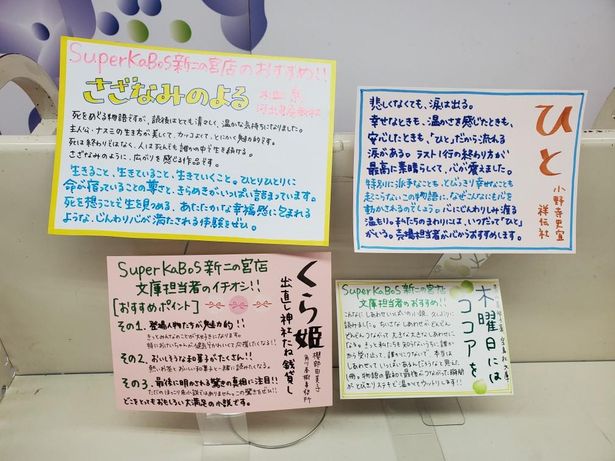 SuperKaBoS新二の宮店のおすすめ!!
さざなみのよる
木皿 泉
河出書房新社
死をめぐる物語ですが、読後はとても清々しく、温かな気持ちになりました。
主人公・ナスミの生き方が美しくて、カッコよくて、とにかく魅力的です。
死は終わりではなく、人は死んでも誰かの中で生き続ける。
さざなみのように、広がりを感じる作品です。
生きること、生きていること、生きていくこと。ひとりひとりに
命が宿っていることの尊さと、きらめきがいっぱい詰まっています。
死を想うことで生を見つめる、あたたかな幸福感に包まれる
ような、じんわり心が満たされる体験をぜひ。
ひと
小野寺史宜
祥伝社
悲しくなくても、涙は出る。
幸せなときも、温かさを感じたときも、
安心したときも、「ひと」だから流れる
涙がある。ラスト1行の終わり方が
最高に素晴らしくて、心が震えました。
特別に派手なことも、とびっきり幸せなことも
起こらないこの物語に、なぜこんなにも心を
動かされるのでしょう。心にじんわりしみ渡る
温もり。私たちのまわりには、いつだって「ひと」
がいる。売場担当者が心からおすすめします。
SuperKaBoS新二の宮店
文庫担当者のイチオシ!!
[おすすめポイント]
その1. 登場人物たちが魅力的!!
その2. おいしそうな和菓子がたくさん!!
その3. 最後に明かされる驚きの真相に注目!!
どこをとってもおもしろい大満足の小説です。
くら姫
出直し神社たね銭貸し
櫻部由美子
角川春樹事務所
SuperKaBoS新二の宮店
文庫担当者のおすすめ!!
木曜日には
ココアを